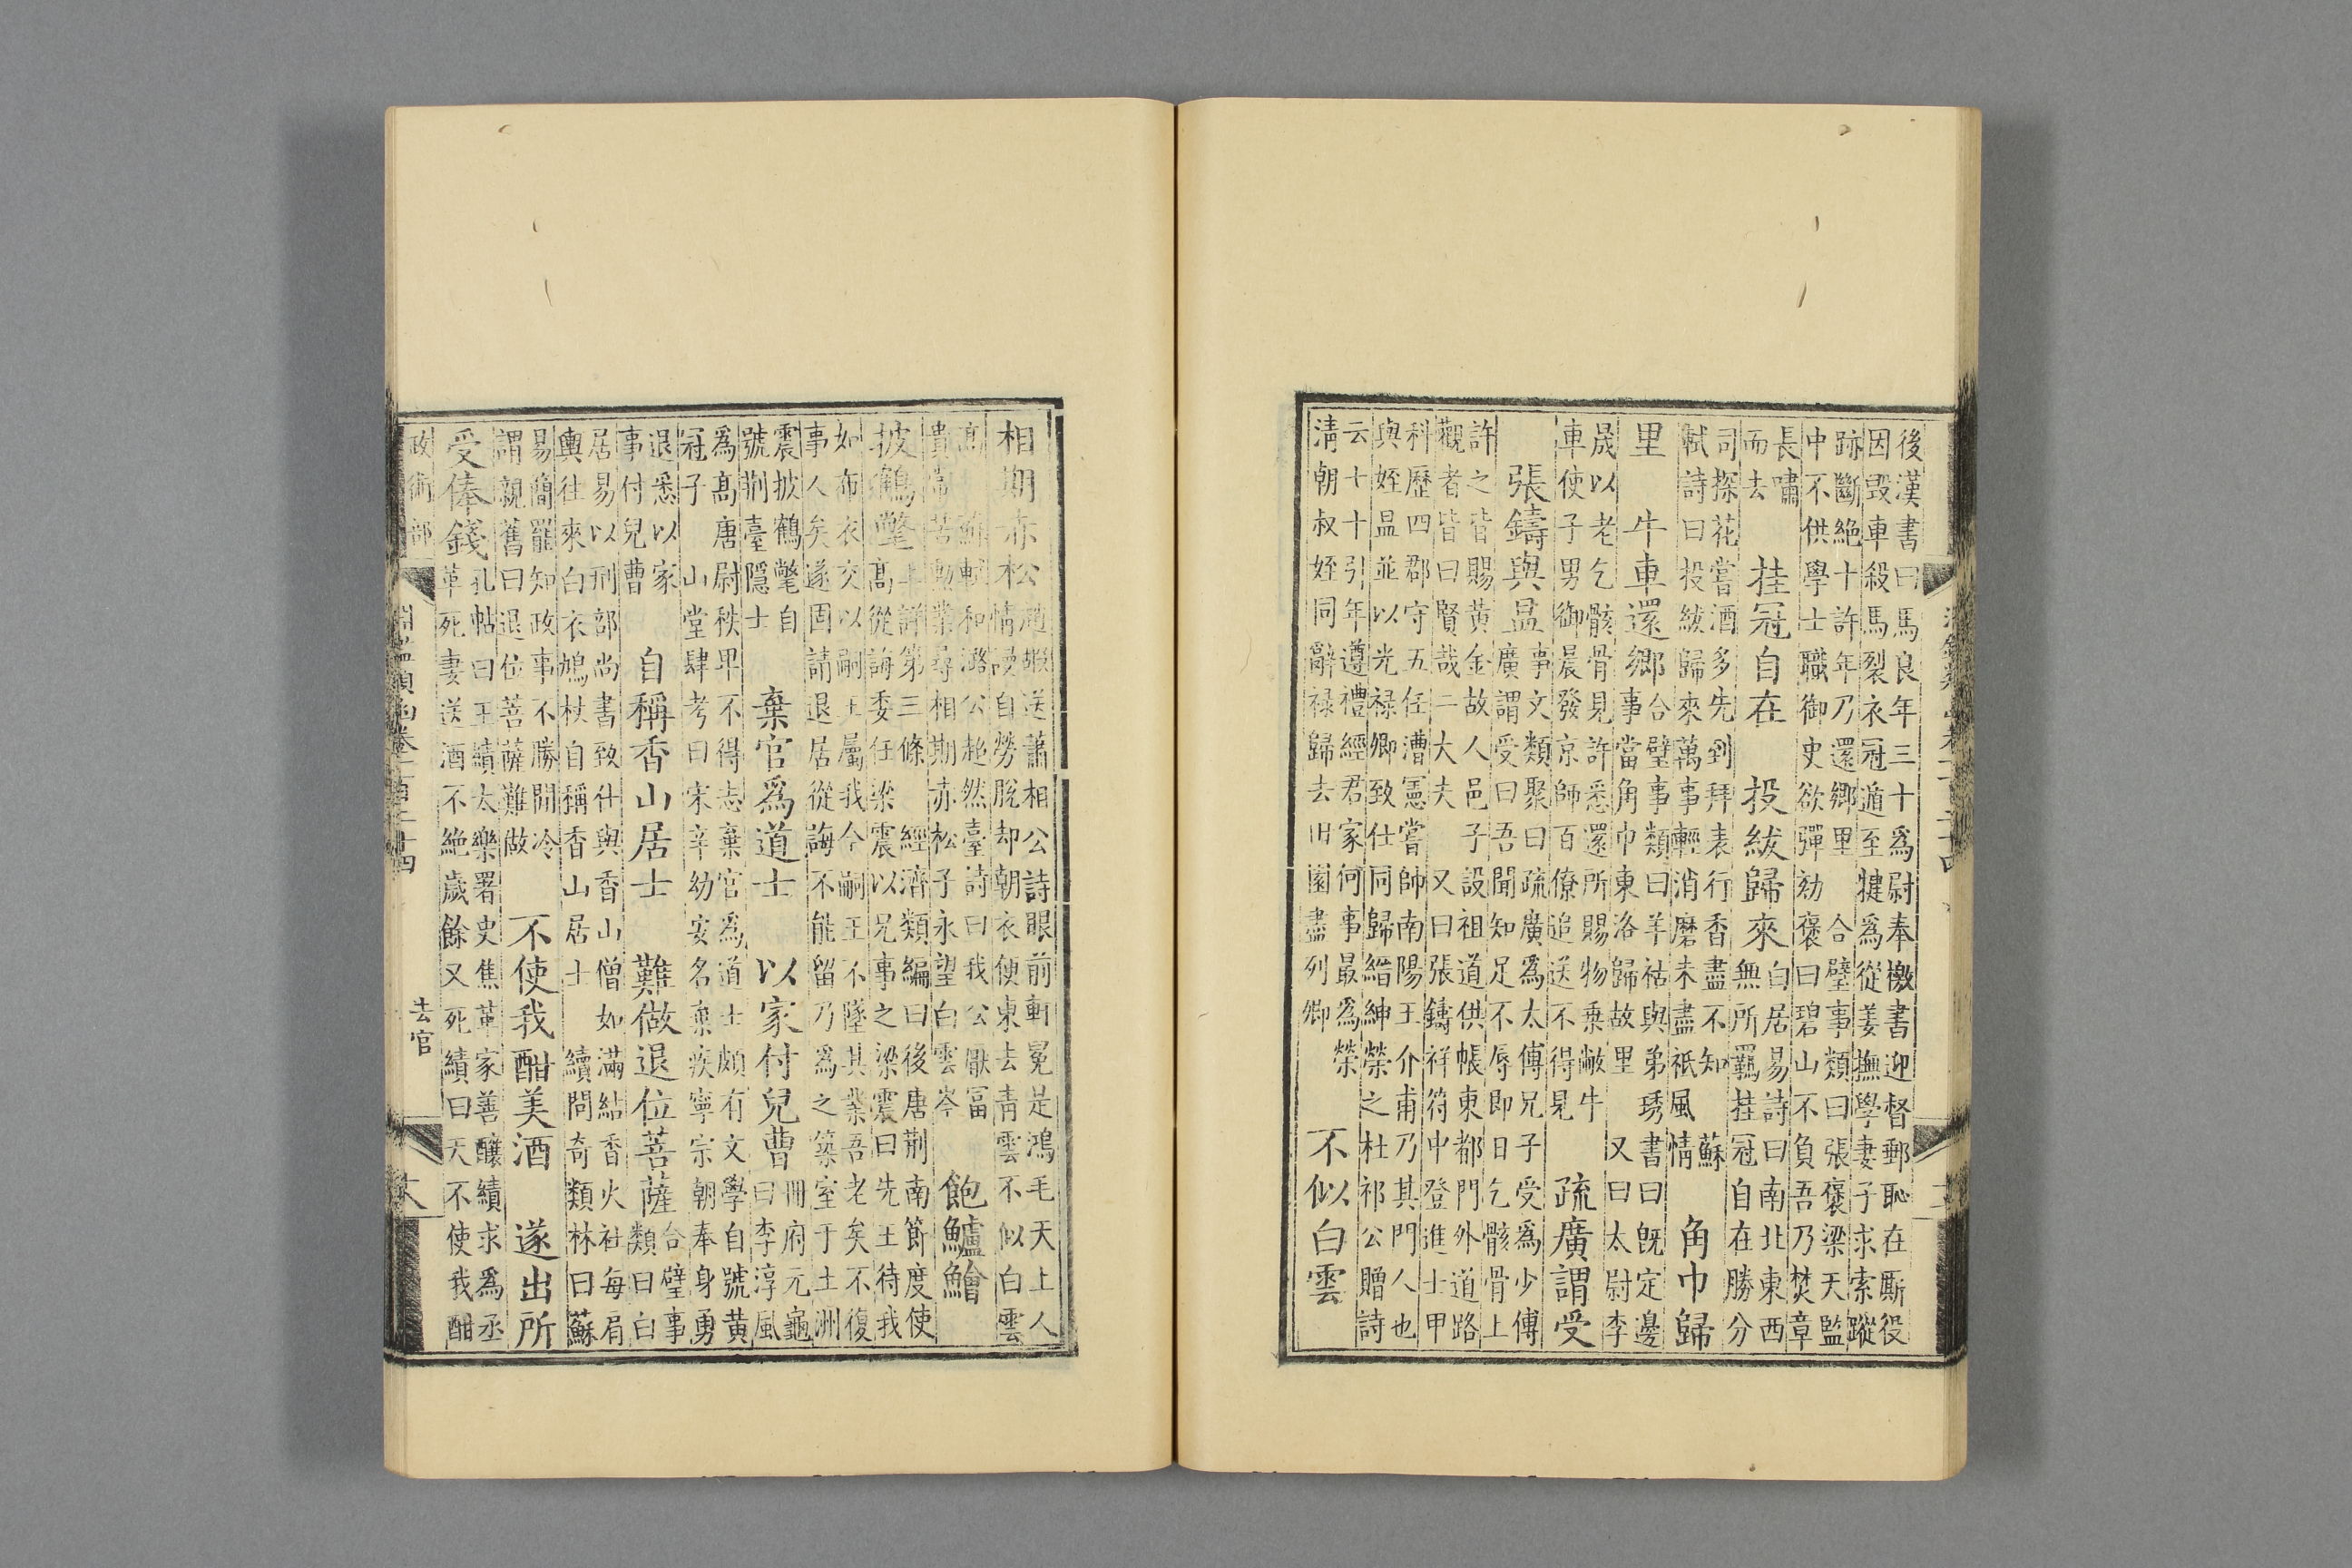 後漢書曰馬良年三十爲尉奉檄書迎督郵恥在厮役
因毀車殺馬裂衣冠遁至犍爲從姜撫學妻子求索蹤
跡斷絶十許年乃還鄉里 合璧事類曰張褒梁天監
中不供學士職御史欲彈劾褒曰碧山不負吾乃焚章
長嘯
而去 挂冠自在 投紱歸來 白居易詩曰南北東西
無所羈挂冠自在勝分
司探花嘗酒多先到拜表行香盡不知 蘇
軾詩曰投紱歸來萬事輕消磨未盡祇風情 角巾歸
里 牛車還鄉 合璧事類曰羊祜與弟琇書曰既定邊
事當角巾東洛歸故里 又曰太尉李
晟以老乞骸骨見許悉還所賜物乗敝牛
車使子男御晨發京師百僚追送不得見 疏廣謂受
張鑄與昷 事文類聚曰疏廣爲太傅兄子受爲少傅
廣謂受曰吾聞知足不辱即日乞骸骨上
許之皆賜黃金故人邑子設祖道供帳東都門外道路
觀者皆曰賢哉二大夫 又曰張鑄祥符中登進士甲
科歷四郡守五任漕憲嘗帥南陽王介甫乃其門人也
與姪昷並以光禄卿致仕同歸縉紳榮之杜祁公贈詩
云十十引年遵禮經君家何事最爲榮
清朝叔姪同辭禄歸去旧園盡列卿 不似白雲
相期赤松 趙嘏送蕭相公詩眼前軒冕是鴻毛天上人
情漫自勞脫却朝衣便東去青雲不似白雲
髙 蘇軾和潞公超然臺詩曰我公厭冨
貴常苦勲業尋相期赤松子永望白雲岑 飽鱸鱠
披鶴氅 上詳第三條 經濟類編曰後唐荆南節度使
髙從誨委任梁震以兄事之梁震曰先王待我
如布衣交以嗣王屬我今嗣王不墜其業吾老矣不復
事人矣遂固請退居從誨不能留乃爲之築室于土洲
震披鶴氅自
號荆臺隠士 棄官爲道士 以家付兒曹 冊府元龜
曰李淳風
爲髙唐尉秩畢不得志棄官爲道士頗有文學自號黃
冠子 山堂肆考曰宋辛幼安名棄疾寧宗朝奉身勇
退悉以家
事付兒曹 自稱香山居士 難做退位菩薩 合璧事
類曰白
居易以刑部尚書致仕與香山僧如滿結香火社每肩
輿往來白衣鳩杖自稱香山居士 續問奇類林曰蘇
易簡罷知政事不勝閒冷
謂親舊曰退位菩薩難做 不使我酣美酒 遂出所
受俸錢 孔帖曰王績太樂署史焦革家善釀績求爲丞
革死妻送酒不絶歲餘又死績曰天不使我酣
政術部 淵鑑類函卷一百三十四 去官